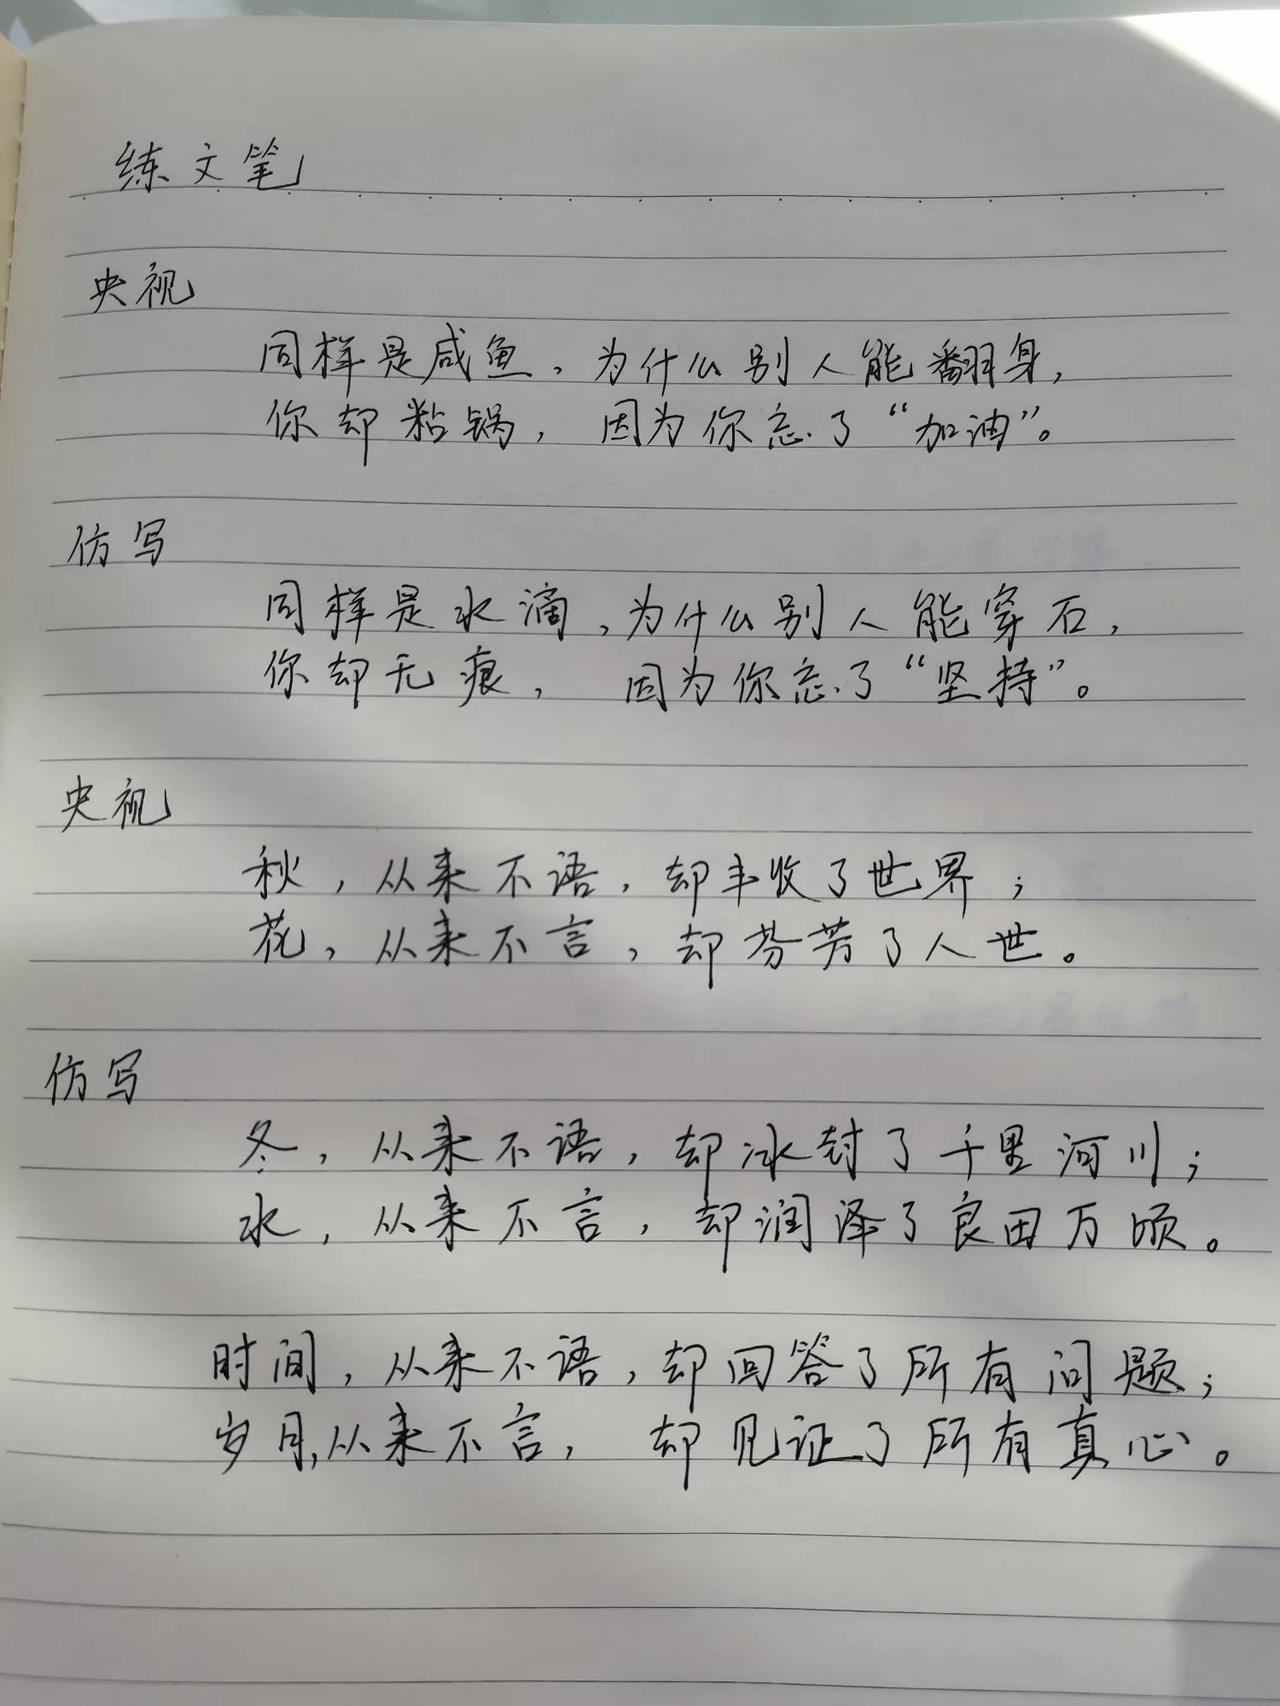 练文笔
央视
同样是咸鱼，为什么别人能翻身，
你却粘锅，因为你忘了“加油”。
仿写
同样是水滴，为什么别人能穿石，
你却无痕，因为你忘了“坚持”。
央视
秋，从来不语，却丰收了世界；
花，从来不言，却芬芳了人世。
仿写
冬，从来不语，却冰封了千里河川；
水，从来不言，却润泽了良田万顷。
时间，从来不语，却回答了所有问题；
岁月，从来不言，却见证了所有真心。